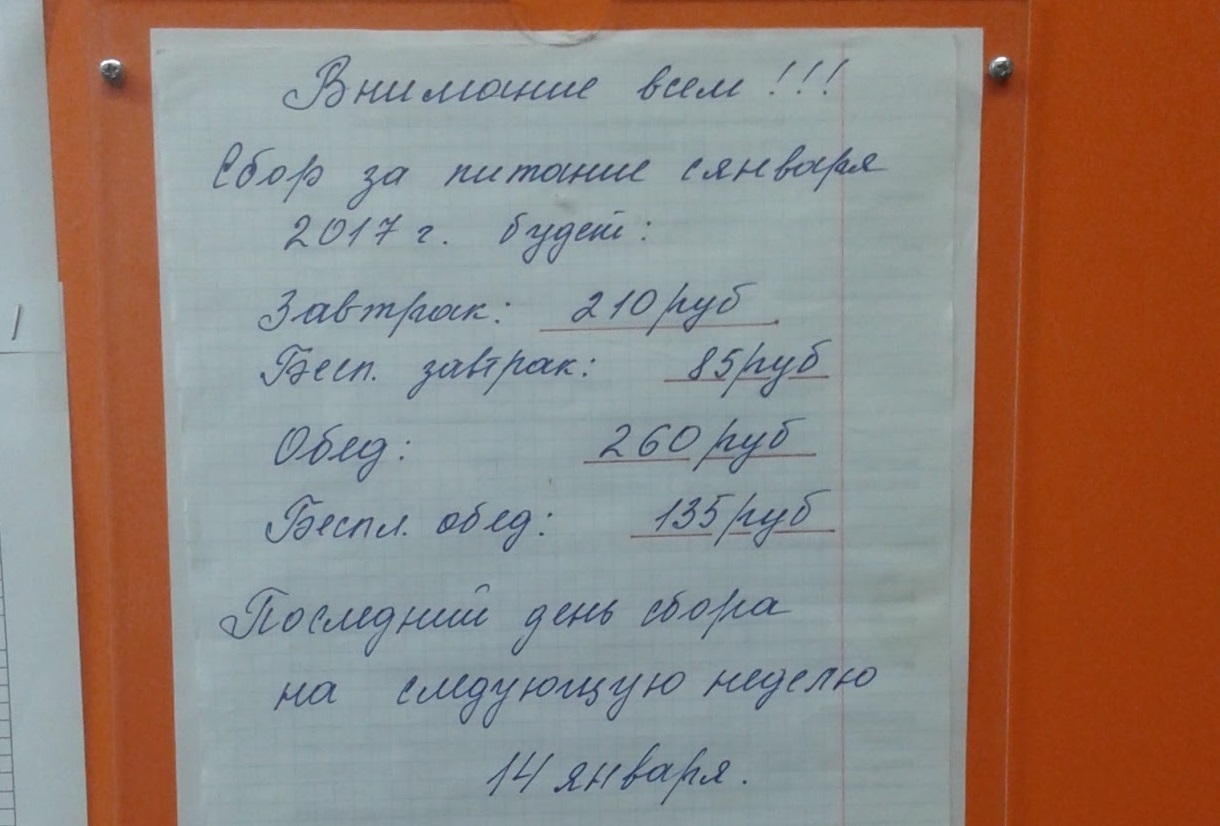 Внимание всем!!!
Сбор за питание сянваря
2017 г. будет:
Завтрак: 210 руб
Бесп. завтрак: 85 руб
Обед: 260 руб
Беспл. обед: 135 руб
Последний день сбора
на следующую неделю
14 января.